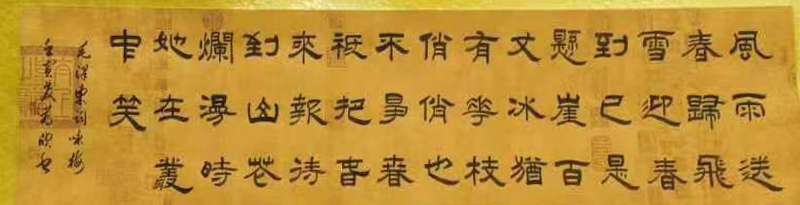 風雨送
春歸飛
雪迎春
到已是
懸崖百
丈冰猶
有花枝
俏俏也
不爭春
祗把春
來報待
到山花
爛漫時
她在叢
中笑
毛澤東詞咏梅
壬寅